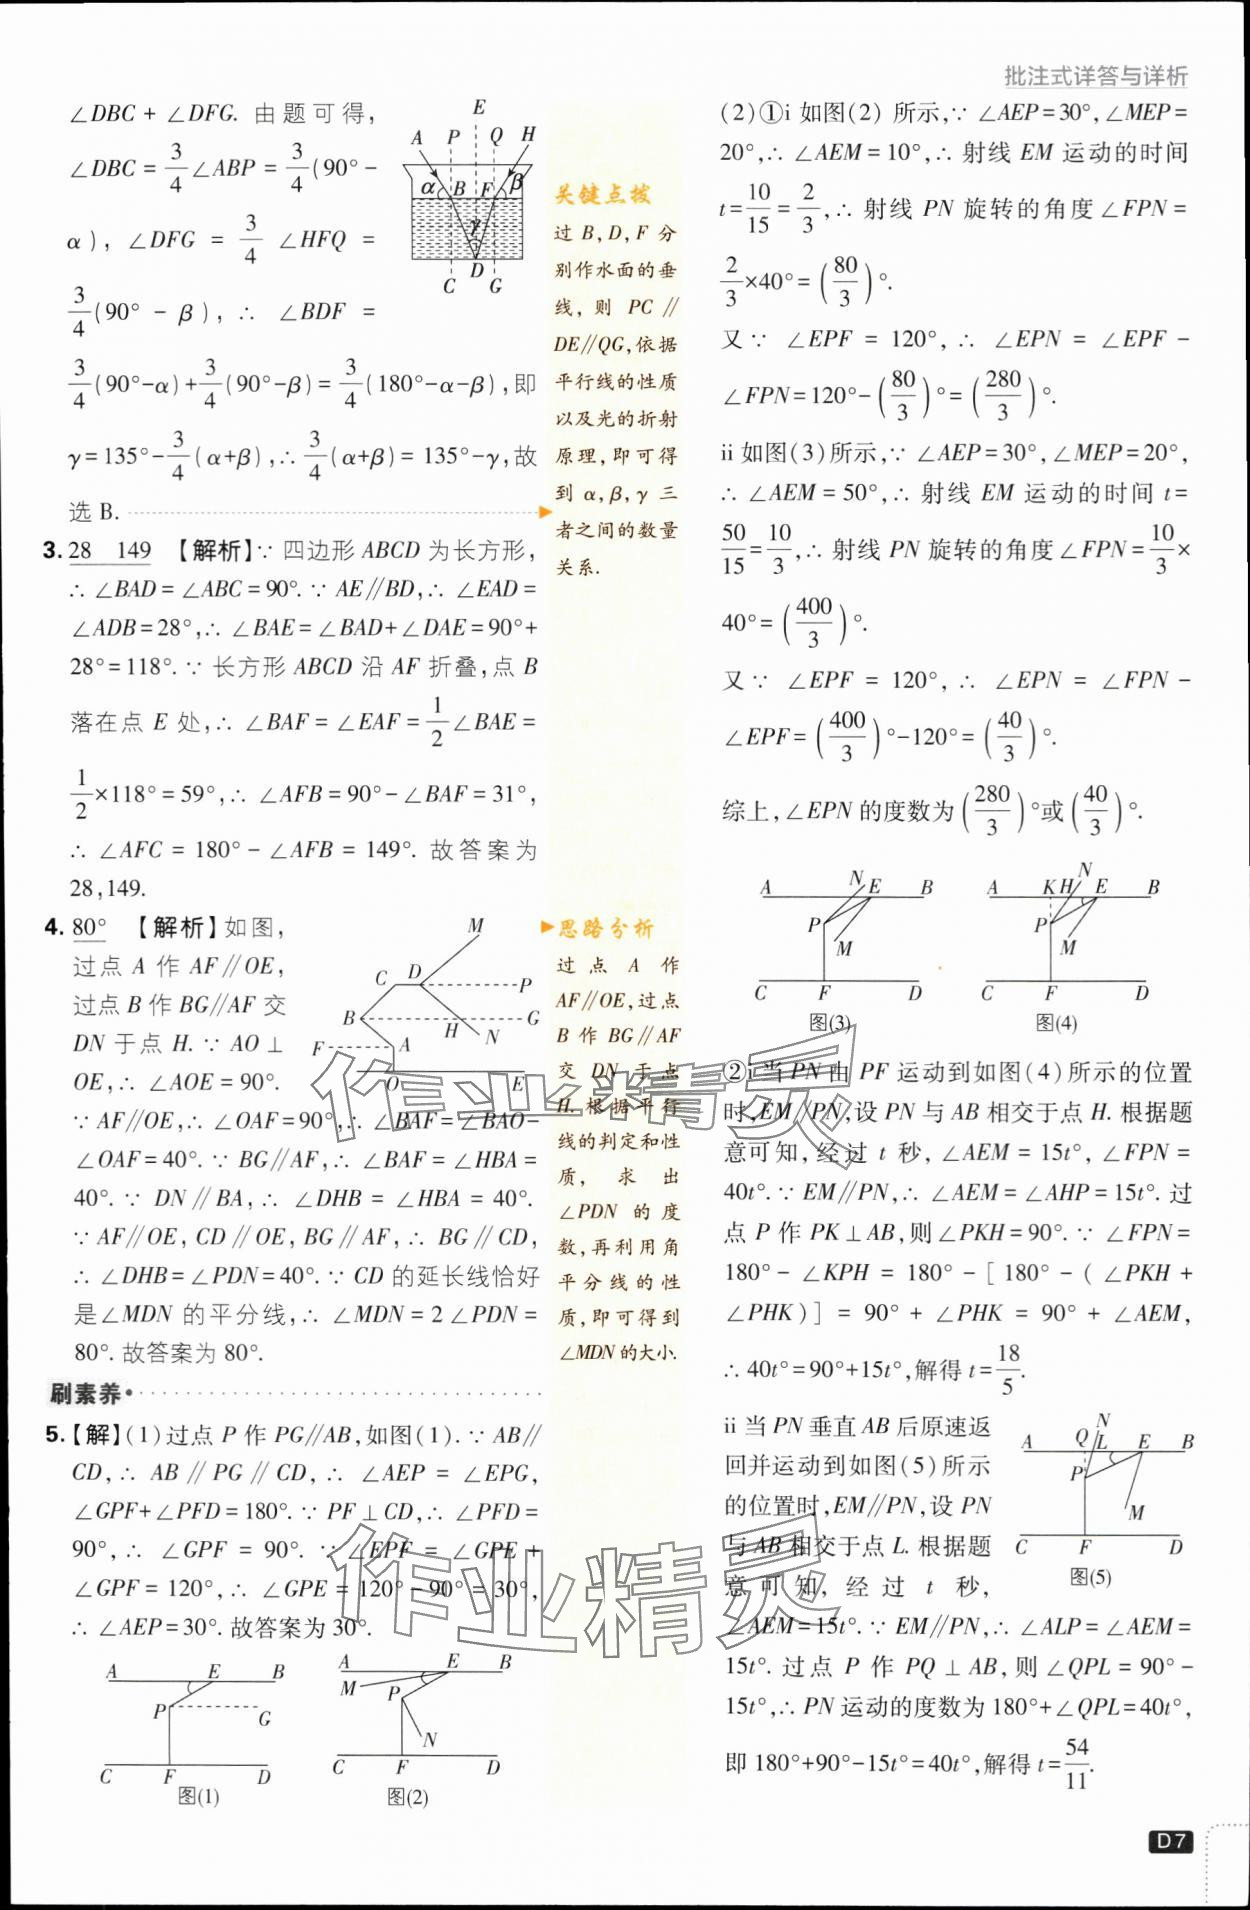 批注式详答与详析
∠DBC + ∠DFG. 由题可得,
∠DBC = 3/4∠ABP = 3/4(90° −
α), ∠DFG = 3/4 ∠HFQ =
3/4(90° − β), ∴ ∠BDF =
3/4(90°−α)+3/4(90°−β)=3/4(180°−α−β),即
γ=135°−3/4(α+β),∴3/4(α+β)=135°−γ,故
选 B.
A P E Q H
α B F β
γ
C D G
3. 28 149 【解析】∵ 四边形 ABCD 为长方形,
∴ ∠BAD=∠ABC=90°. ∵ AE∥BD,∴ ∠EAD=
∠ADB=28°,∴ ∠BAE=∠BAD+∠DAE=90°+
28°=118°. ∵ 长方形 ABCD 沿 AF 折叠,点 B
落在点 E 处,∴ ∠BAF=∠EAF=1/2∠BAE=
1/2×118°=59°,∴ ∠AFB=90°−∠BAF=31°,
∴ ∠AFC = 180° − ∠AFB = 149°. 故答案为
28,149.
4. 80° 【解析】如图,
过点 A 作 AF∥OE,
过点 B 作 BG∥AF 交
DN 于点 H. ∵ AO ⊥
OE,∴ ∠AOE = 90°.
∵ AF∥OE,∴ ∠OAF=90°,∴ ∠BAF=∠BAO−
∠OAF=40°. ∵ BG∥AF,∴ ∠BAF=∠HBA=
40°. ∵ DN∥BA,∴ ∠DHB = ∠HBA = 40°.
∵ AF∥OE, CD∥OE, BG∥AF, ∴ BG∥CD,
∴ ∠DHB=∠PDN=40°. ∵ CD 的延长线恰好
是∠MDN 的平分线,∴ ∠MDN = 2∠PDN =
80°. 故答案为 80°.
M
C D P
B H N G
F A
O E
刷素养
5.【解】(1)过点 P 作 PG∥AB,如图(1). ∵ AB∥
CD,∴ AB∥PG∥CD,∴ ∠AEP = ∠EPG,
∠GPF+∠PFD=180°. ∵ PF⊥CD,∴ ∠PFD=
90°,∴ ∠GPF = 90°. ∵ ∠EPF = ∠GPE +
∠GPF=120°,∴ ∠GPE=120°−90°=30°,
∴ ∠AEP=30°. 故答案为 30°.
A E B
P G
C F D
图(1)
A E B
M P
N
C F D
图(2)
关键点拨
过 B,D,F 分
别作水面的垂
线, 则 PC∥
DE∥QG,依据
平行线的性质
以及光的折射
原理,即可得
到 α,β,γ 三
者之间的数量
关系.
思路分析
过点 A 作
AF∥OE,过点
B 作 BG∥AF
交 DN 于点
H. 根据平行
线的判定和性
质, 求出
∠PDN 的度
数,再利用角
平分线的性
质,即可得到
∠MDN 的大小.
(2)①i 如图(2) 所示,∵ ∠AEP=30°,∠MEP=
20°,∴ ∠AEM=10°,∴ 射线 EM 运动的时间
t=10/15=2/3,∴ 射线 PN 旋转的角度∠FPN=
2/3×40°=(80/3)°.
又∵ ∠EPF = 120°, ∴ ∠EPN = ∠EPF −
∠FPN=120°−(80/3)°=(280/3)°.
ii 如图(3)所示,∵ ∠AEP=30°,∠MEP=20°,
∴ ∠AEM=50°,∴ 射线 EM 运动的时间 t=
50/15=10/3,∴ 射线 PN 旋转的角度∠FPN=10/3×
40°=(400/3)°.
又∵ ∠EPF = 120°, ∴ ∠EPN = ∠FPN −
∠EPF=(400/3)°−120°=(40/3)°.
综上,∠EPN 的度数为(280/3)°或(40/3)°.
A N E B
P
M
C F D
图(3)
A K H N E B
P
M
C F D
图(4)
②i 当 PN 由 PF 运动到如图(4)所示的位置
时,EM∥PN,设 PN 与 AB 相交于点 H. 根据题
意可知,经过 t 秒,∠AEM = 15t°, ∠FPN =
40t°. ∵ EM∥PN,∴ ∠AEM=∠AHP=15t°. 过
点 P 作 PK⊥AB,则∠PKH=90°. ∵ ∠FPN=
180°− ∠KPH = 180°−[180°−(∠PKH +
∠PHK)] = 90° + ∠PHK = 90° + ∠AEM,
∴ 40t°=90°+15t°,解得 t=18/5.
ii 当 PN 垂直 AB 后原速返
回并运动到如图(5)所示
的位置时,EM∥PN,设 PN
与 AB 相交于点 L. 根据题
意可知, 经过 t 秒,
∠AEM=15t°. ∵ EM∥PN,∴ ∠ALP=∠AEM=
15t°. 过点 P 作 PQ⊥AB,则∠QPL=90°−
15t°,∴ PN 运动的度数为 180°+∠QPL=40t°,
即 180°+90°−15t°=40t°,解得 t=54/11.
A Q N L E B
P
M
C F D
图(5)
作业精灵
作业精灵
D7